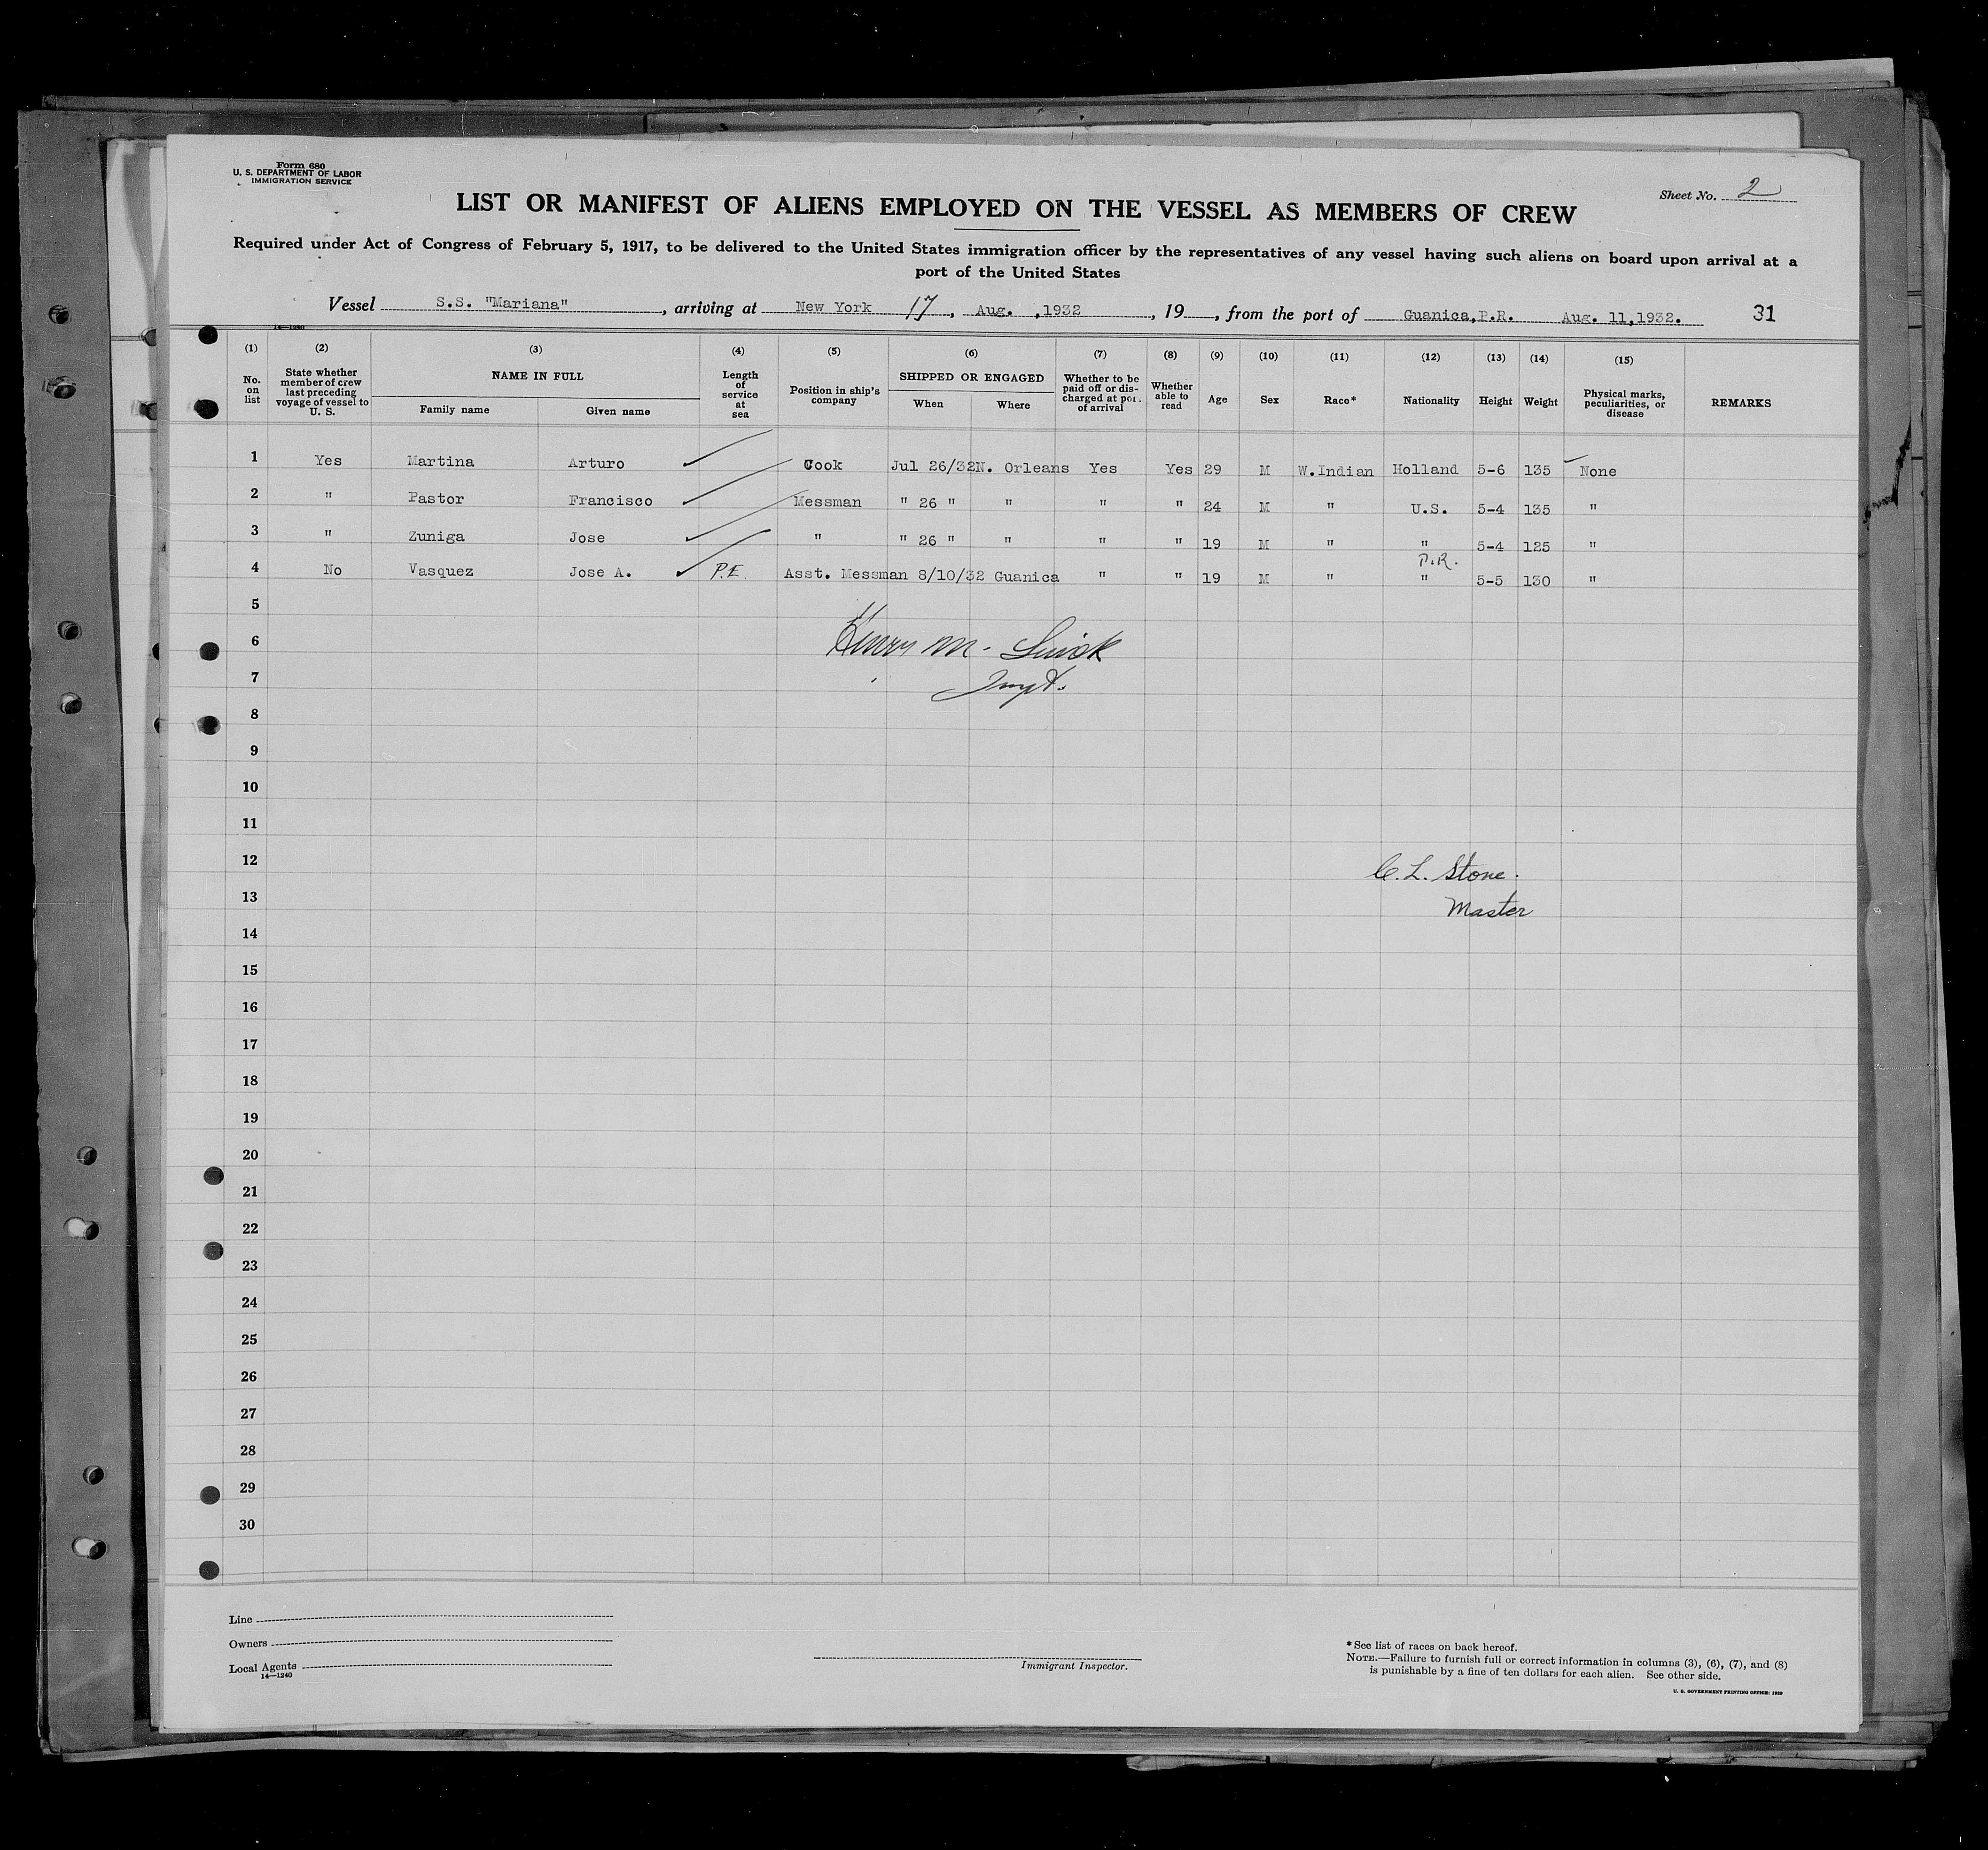 Form 680
U. S. DEPARTMENT OF LABOR
IMMIGRATION SERVICE
Sheet No. 2
LIST OR MANIFEST OF ALIENS EMPLOYED ON THE VESSEL AS MEMBERS OF CREW
Required under Act of Congress of February 5, 1917, to be delivered to the United States immigration officer by the representatives of any vessel having such aliens on board upon arrival at a
port of the United States
Vessel S.S. "Mariana", arriving at New York 17, Aug. ,1932, 19, from the port of Guanica,P.R. Aug. 11,1932. 31
14—1240
(1) (2) (3) (4) (5) (6) (7) (8) (9) (10) (11) (12) (13) (14) (15)
No. on list
State whether member of crew last preceding voyage of vessel to U. S.
NAME IN FULL
Family name Given name
Length of service at sea
Position in ship's company
SHIPPED OR ENGAGED
When Where
Whether to be paid off or discharged at port of arrival
Whether able to read
Age Sex Race* Nationality Height Weight
Physical marks, peculiarities, or disease
REMARKS
1 Yes Martina Arturo Cook Jul 26/32 N. Orleans Yes Yes 29 M W.Indian Holland 5-6 135 None
2 " Pastor Francisco Messman " 26 " " " " 24 M " U.S. 5-4 135 "
3 " Zuniga Jose " " 26 " " " " 19 M " " 5-4 125 "
P.R.
4 No Vasquez Jose A. P.E. Asst. Messman 8/10/32 Guanica " " 19 M " " 5-5 130 "
5
6
Henry M.
7
8
9
10
11
12
C. L. Stone.
13
Master
14
15
16
17
18
19
20
21
22
23
24
25
26
27
28
29
30
Line
Owners
Local Agents
14—1240
Immigrant Inspector.
*See list of races on back hereof.
NOTE.—Failure to furnish full or correct information in columns (3), (6), (7), and (8)
is punishable by a fine of ten dollars for each alien. See other side.